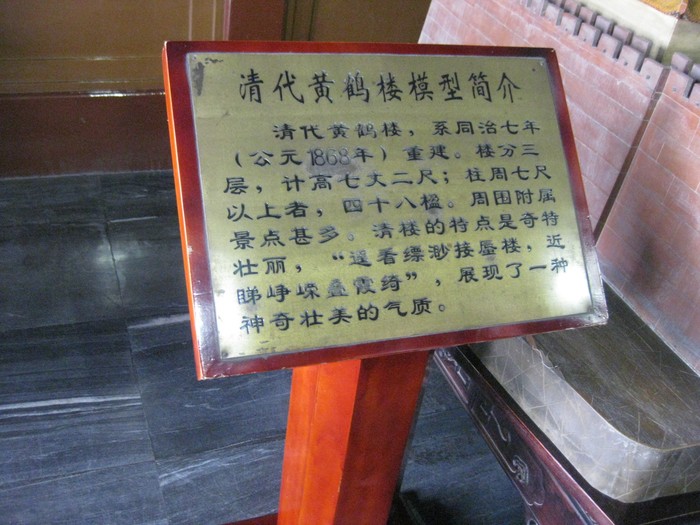 清代黄鹤楼模型简介
清代黄鹤楼，系同治七年
（公元1868年）重建。楼分三
层，计高七丈二尺；柱周七尺
以上者，四十八楹。周围附属
景点甚多。清楼的特点是奇特
壮丽，“遥看缥渺接蜃楼，近
睇峥嵘叠霞绮”，展现了一种
神奇壮美的气质。